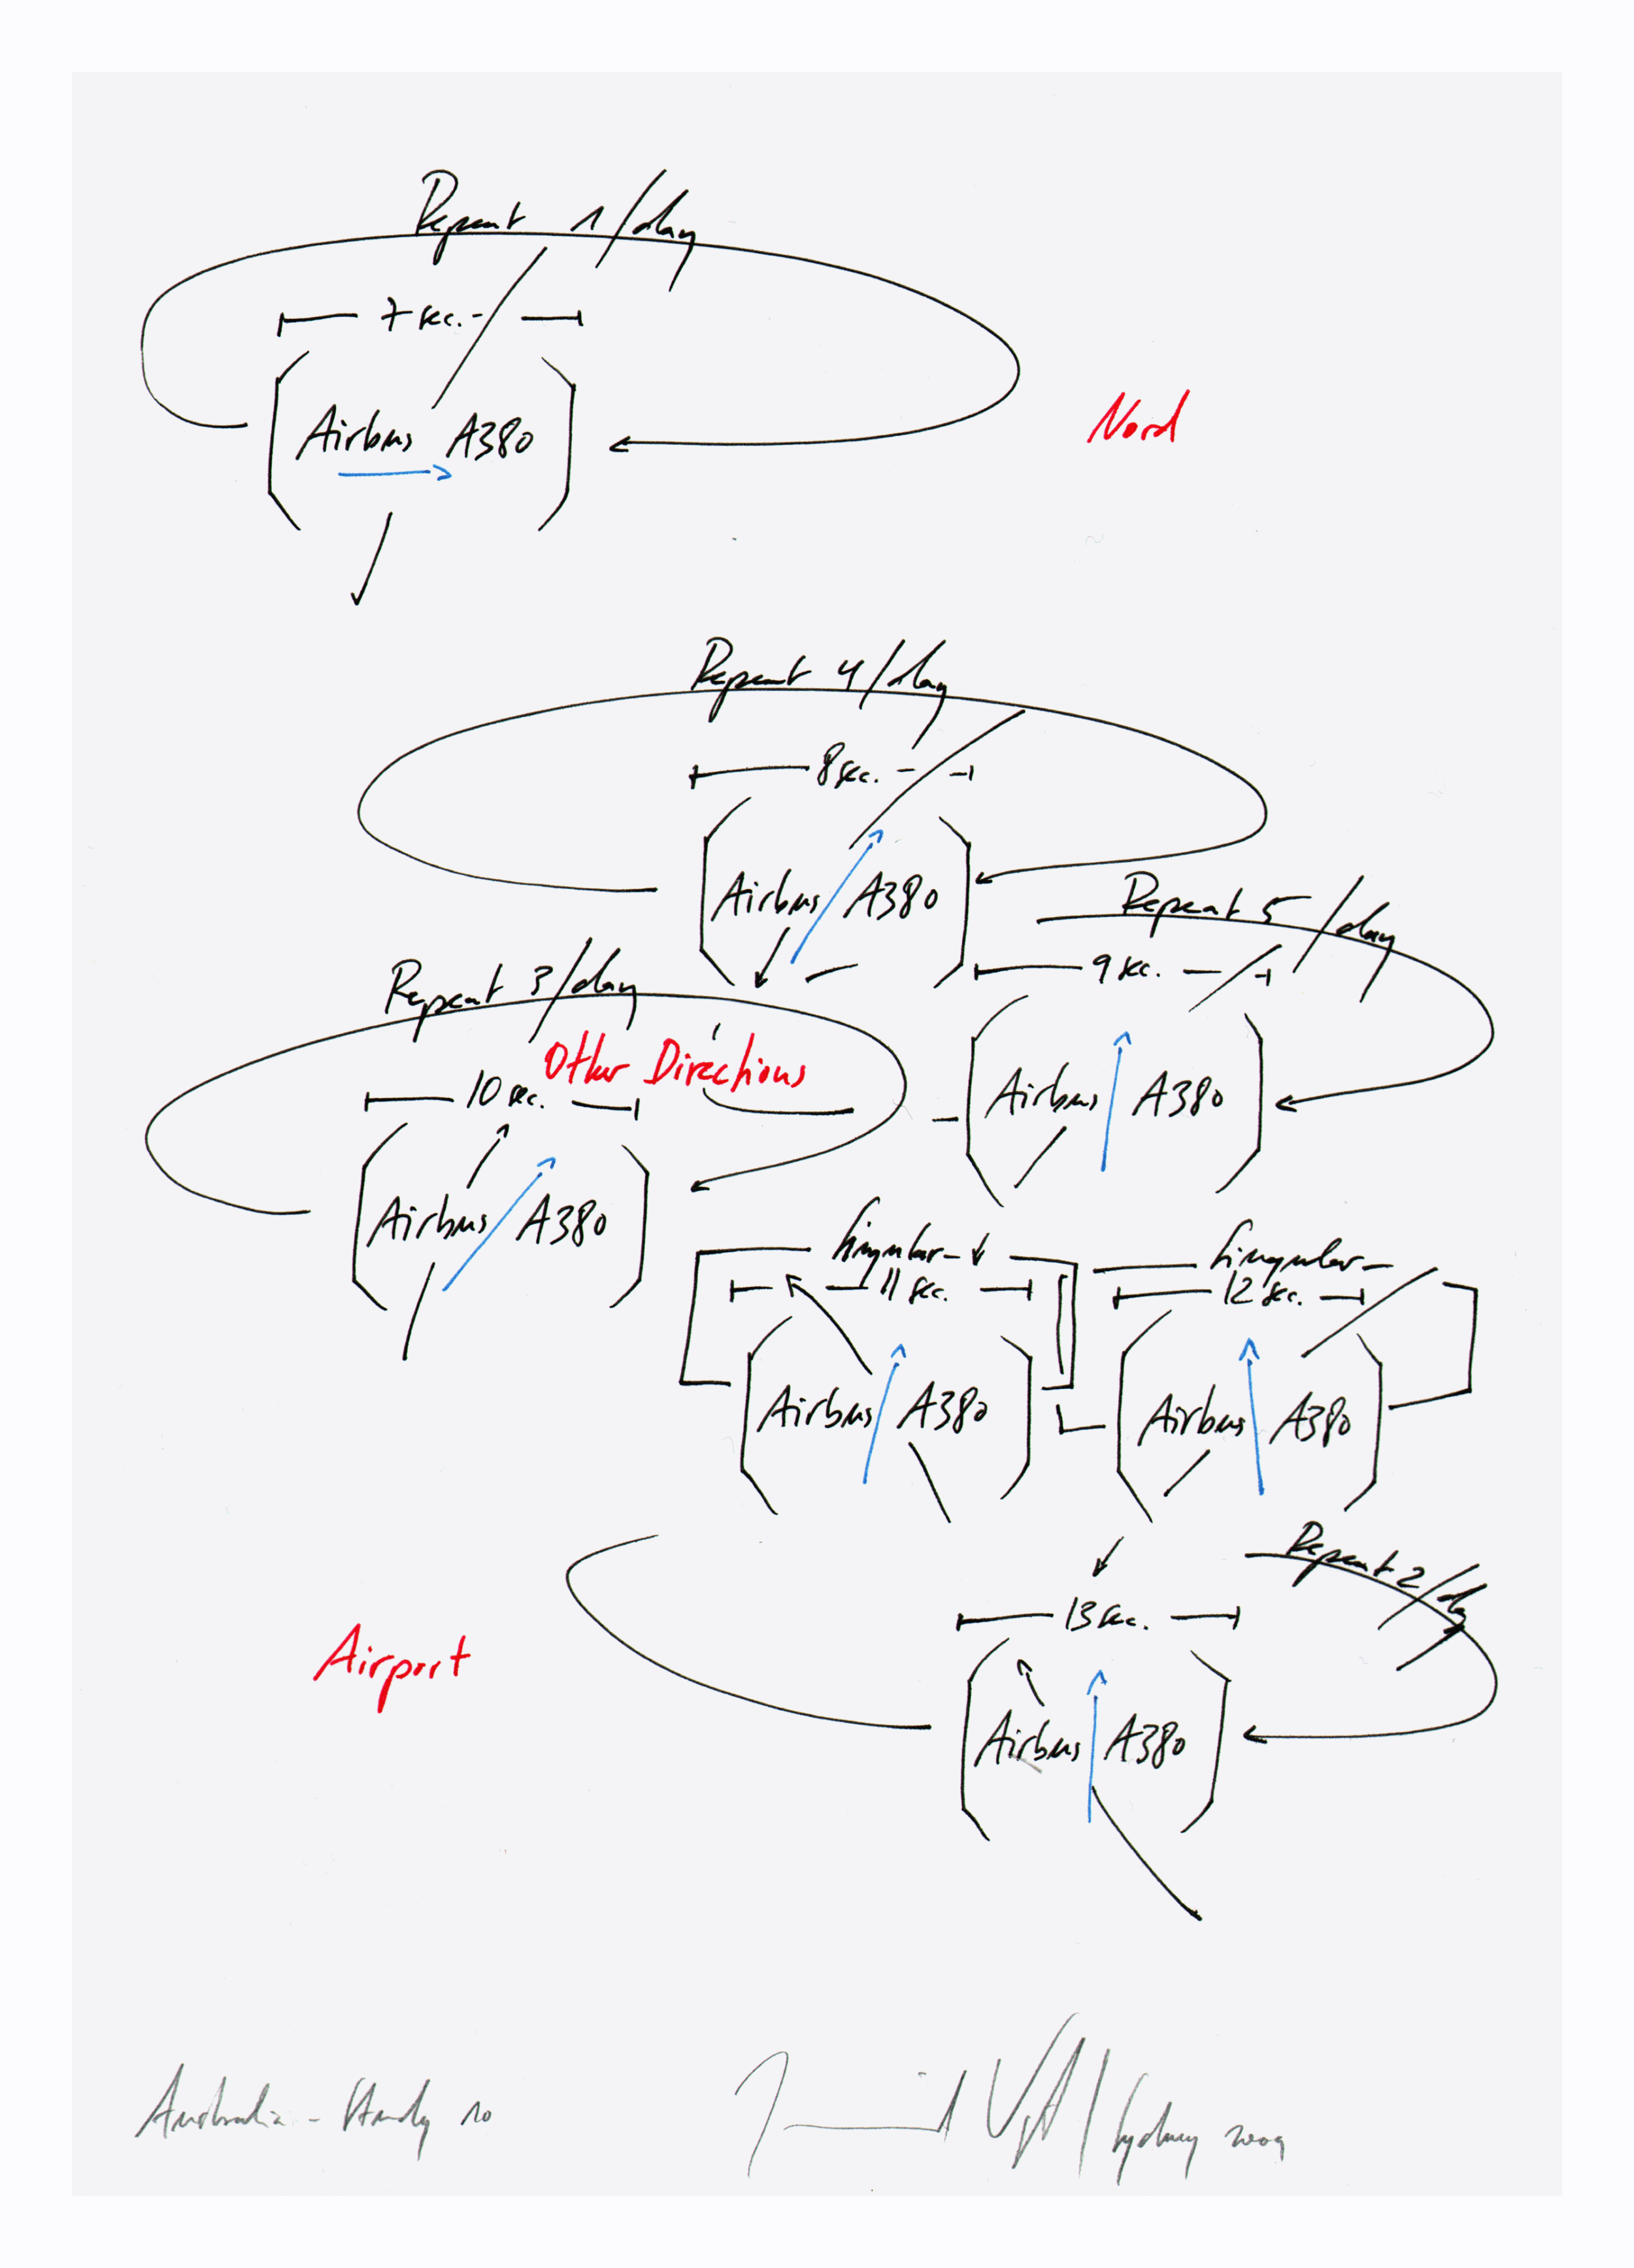 Repeat 1/day
7 sec.
Airbus A380
Nord
Repeat 4/day
8 sec.
Airbus A380
Repeat 5/day
9 sec.
Airbus A380
Repeat 3/day
Other Directions
10 sec.
Airbus A380
Singular
11 sec.
Airbus A380
Singular
12 sec.
Airbus A380
Repeat 2/day
13 sec.
Airbus A380
Airport
Australia - Study 10
Sydney 2009